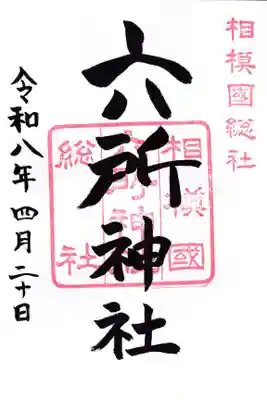 相模國総社
六所神社
相模國
六所神社
総社
令和八年 四月二十日